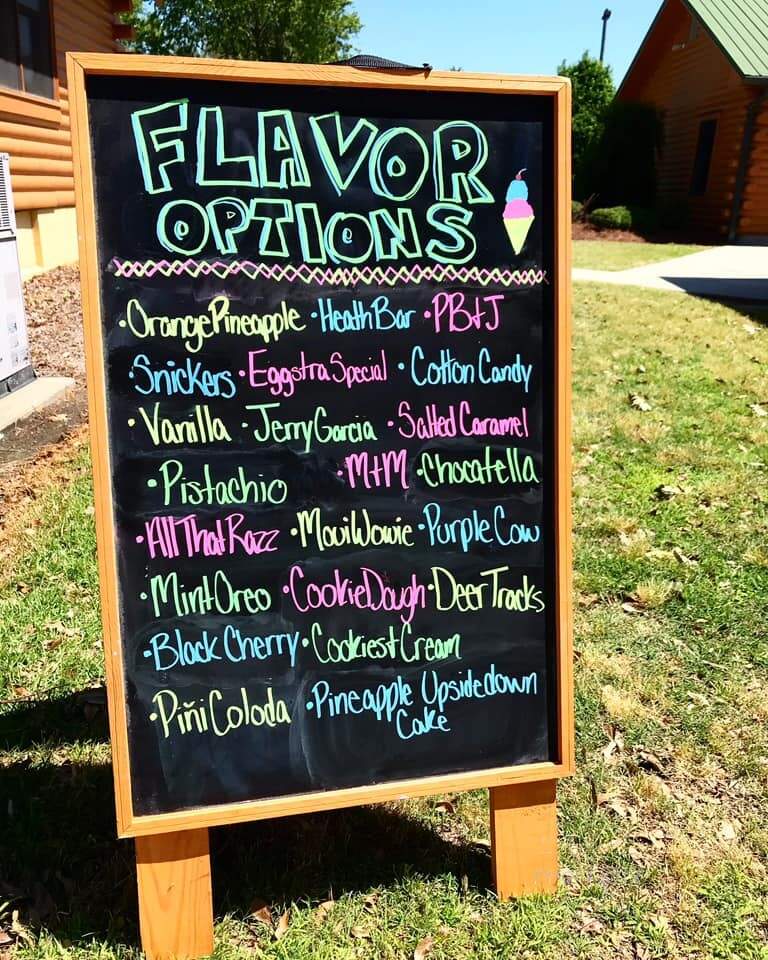 FLAVOR
OPTIONS
•Orange Pineapple •Heath Bar •PB+J
•Snickers •Eggstra Special •Cotton Candy
•Vanilla •Jerry Garcia •Salted Caramel
•Pistachio •M+M •Chocatella
•All That Razz •Mauiwowie •Purple Cow
•Mint Oreo •Cookie Dough •Deer Tracks
•Black Cherry •Cookies+Cream
•Piñi Coloda •Pineapple Upsidedown
Cake